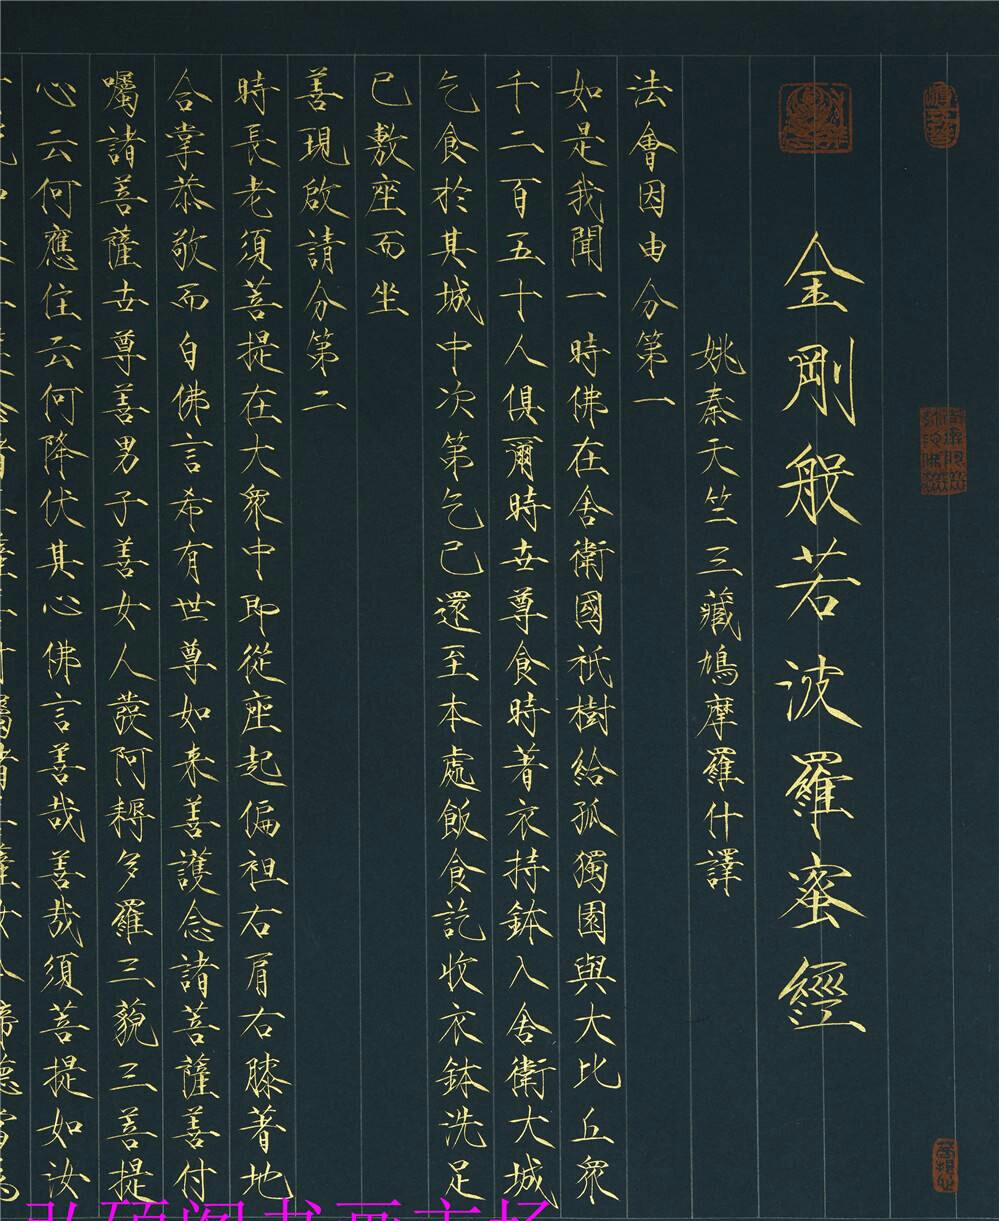 金剛般若波羅蜜經
姚秦天竺三藏鳩摩羅什譯
法會因由分第一
如是我聞一時佛在舍衛國祇樹給孤獨園與大比丘眾
千二百五十人俱爾時世尊食時著衣持鉢入舍衛大城
乞食於其城中次第乞已還至本處飯食訖收衣鉢洗足
已敷座而坐
善現啟請分第二
時長老須菩提在大眾中即從座起偏袒右肩右膝著地
合掌恭敬而白佛言希有世尊如来善護念諸菩薩善付
囑諸菩薩世尊善男子善女人發阿耨多羅三藐三菩提
心云何應住云何降伏其心佛言善哉善哉須菩提如汝
弘碩阁书画市场